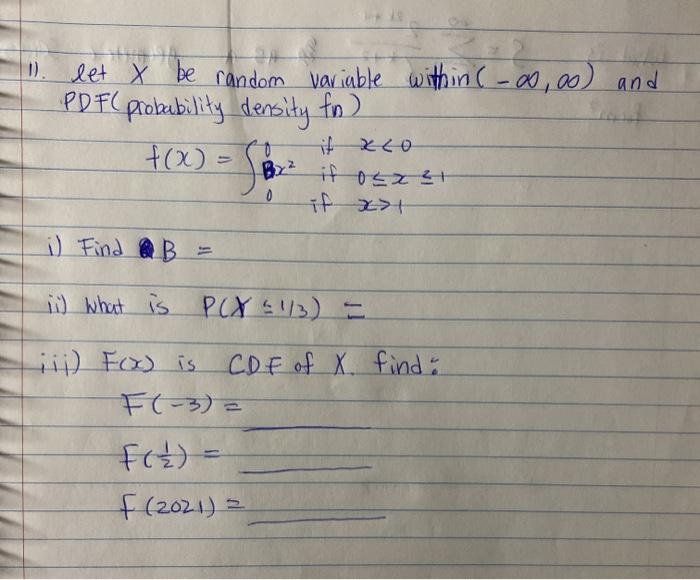 11. let X be random variable within (-∞, ∞) and
PDF (probability density fn)
f(x) = { 0 if x<0
Bx² if 0≤x≤1
0 if x>1
i) Find B =
ii) What is P(X ≤ 1/3) =
iii) F(x) is CDF of X. find:
F(-3) = ______
F(½) = ______
f(2021) = ______